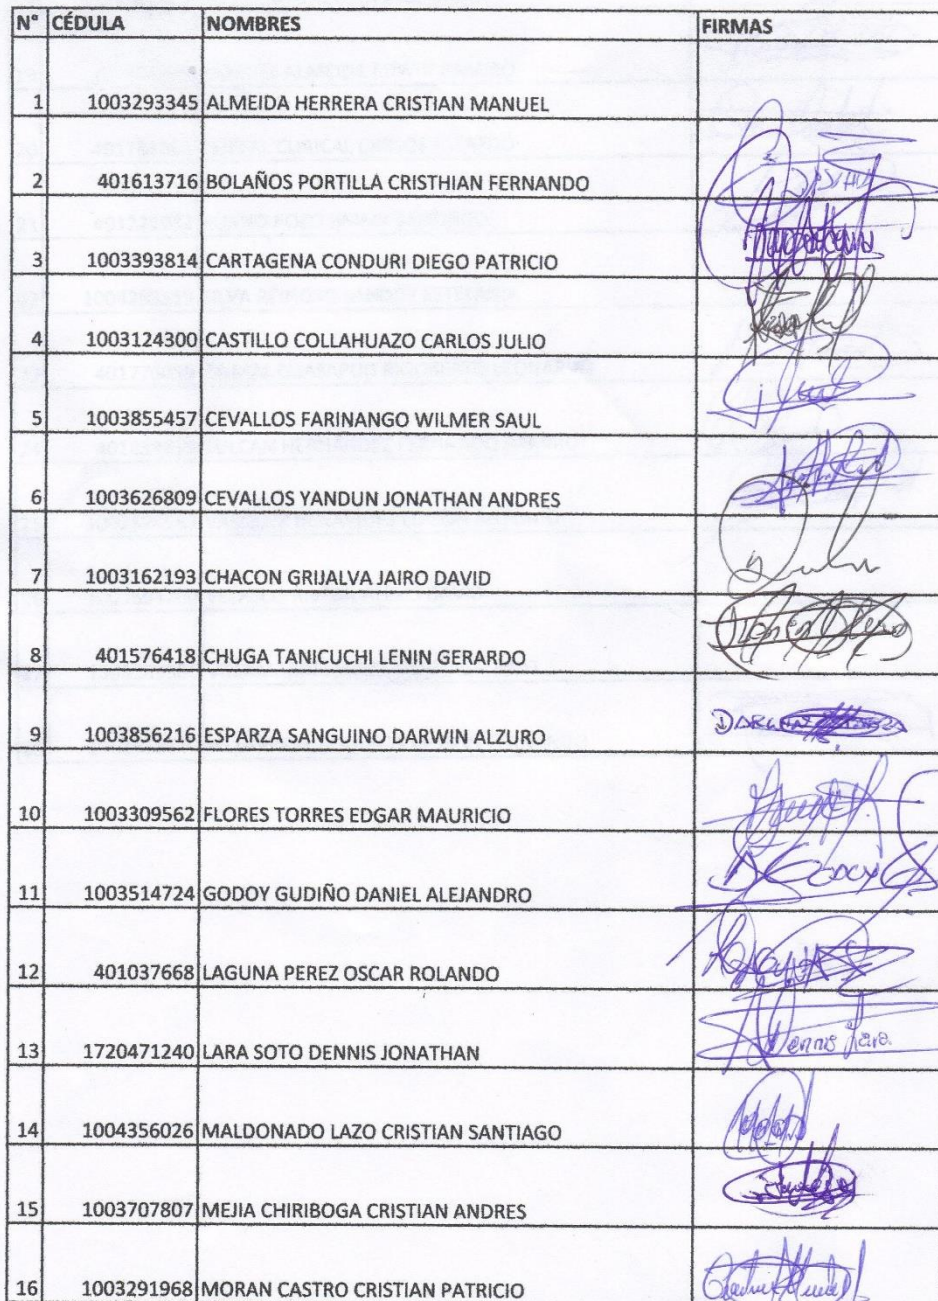 N° CÉDULA NOMBRES FIRMAS
1 1003293345 ALMEIDA HERRERA CRISTIAN MANUEL
2 401613716 BOLAÑOS PORTILLA CRISTHIAN FERNANDO
3 1003393814 CARTAGENA CONDURI DIEGO PATRICIO
4 1003124300 CASTILLO COLLAHUAZO CARLOS JULIO
5 1003855457 CEVALLOS FARINANGO WILMER SAUL
6 1003626809 CEVALLOS YANDUN JONATHAN ANDRES
7 1003162193 CHACON GRIJALVA JAIRO DAVID
8 401576418 CHUGA TANICUCHI LENIN GERARDO
9 1003856216 ESPARZA SANGUINO DARWIN ALZURO
10 1003309562 FLORES TORRES EDGAR MAURICIO
11 1003514724 GODOY GUDIÑO DANIEL ALEJANDRO
12 401037668 LAGUNA PEREZ OSCAR ROLANDO
13 1720471240 LARA SOTO DENNIS JONATHAN Dennis Lara
14 1004356026 MALDONADO LAZO CRISTIAN SANTIAGO
15 1003707807 MEJIA CHIRIBOGA CRISTIAN ANDRES
16 1003291968 MORAN CASTRO CRISTIAN PATRICIO